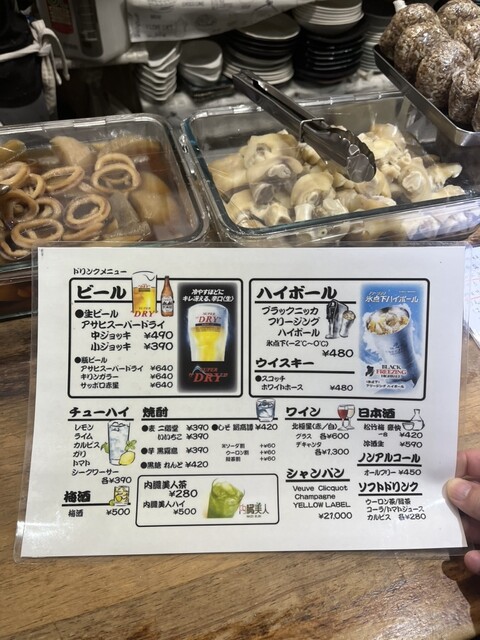 ドリンクメニュー
ビール
●生ビール
アサヒスーパードライ
中ジョッキ ¥490
小ジョッキ ¥390
●瓶ビール
アサヒスーパードライ ¥640
キリンラガー ¥640
サッポロ赤星 ¥640
冷やすほどに
キレ冴える、辛口〈生〉
DRY
DRY
ハイボール
ブラックニッカ
フリージング
ハイボール
氷点下(-2℃~0℃)
¥480
ウイスキー
●スコッチ
ホワイトホース ¥480
氷点下ハイボール
BLACK
FREEZING
チューハイ
レモン
ライム
カルピス
ガリ
トマト
シークワーサー
各¥390
梅酒
梅酒 ¥500
焼酎
●麦 二階堂 ¥390
いいちこ ¥390
●芋 黒霧島 ¥390
●黒糖 れんと ¥420
●しそ 鍛高譚 ¥420
※ソーダ割 +¥60
ウーロン割 +¥60
緑茶割 +¥60
内臓美人茶
¥280
内臓美人ハイ
¥500
内臓美人
ワイン
北極星(赤/白)
グラス 各¥600
デキャンタ
各¥1,300
シャンパン
Veuve Clicquot
Champagne
YELLOW LABEL
¥21,000
日本酒
松竹梅 豪快
一合 ¥420
冷酒生 ¥590
ノンアルコール
オールフリー ¥450
ソフトドリンク
ウーロン茶/緑茶
コーラ/トマトジュース
カルピス 各¥280